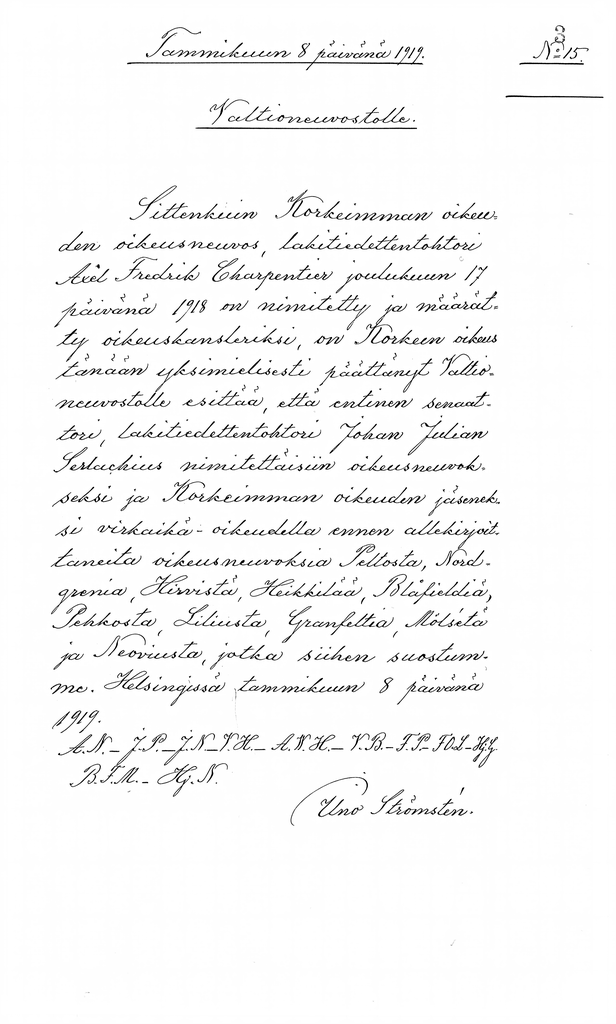 Tammikuun 8 päivänä 1919.
No 15.
Valtioneuvostolle.
Sittenkuin Korkeimman oikeu-
den oikeusneuvos, lakitiedettentohtori
Axel Fredrik Charpentier joulukuun 17
päivänä 1918 on nimitetty ja määrät-
ty oikeuskansleriksi, on Korkein oikeus
tänään yksimielisesti päättänyt Valtio-
neuvostolle esittää, että entinen senaat-
tori, lakitiedettentohtori Johan Julian
Serlachius nimitettäisiin oikeusneuvok-
seksi ja Korkeimman oikeuden jäsenek-
si virkaikä-oikeudella ennen allekirjoit-
taneita oikeusneuvoksia Peltosta, Nord-
grenia, Hirvistä, Heikkilää, Blåfieldiä,
Pehkosta, Liliusta, Granfeltia, Mölsétä
ja Neoviusta, jotka siihen suostum-
me. Helsingissä, tammikuun 8 päivänä
1919.
A.N._ J.P._ J.N_V.H._ A.W.H._ V.B._ F.P_ F.O.L_Hj.G
B.F.M._ Hj.N.
Uno Strömstén.